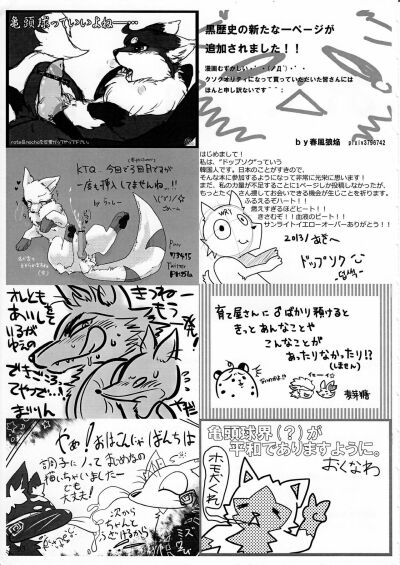 亀頭球っていいよね———
黒歴史の新たな一ページが
追加されました！！
漫画むずかしい・゜・(ノД`)・゜・
クソクオリティになって買っていただいた皆さんには
ほんと申し訳ないです＾＾；
by春風狼焔 pixiv3796742
KTQ…今回で3回目ですが
一度も挿入してませんね。!!
はじめまして！
私は、“ドップソク”っていう
韓国人です。日本のことがすきので、
そんな本に参加するようになって非常に光栄に思います！
また、私の力量が不足することに1ページしか投稿しなかったが、
もっとたくさん接してお会いできる機会が生じことを祈ります。
ふるえるぞハート！！
燃えすぎるほどヒート！！
きさむぞ！！血液のビート！！
サンライトイエローオーバーありがとう！！
2013/
ドップソク
オレとも
あいして
いるが
ゆえの
できごころ
てやつで…！
きつねー
もう
一発！
育て屋さんに♂ばかり預けると
きっとあんなことや
こんなことが
あったりなかったり!?
(しません)
芽芽糖
やぁ！おはこんにゃばんちは
調子にノッて丸めなの
描いちゃいましたー
でも
大丈夫！
次から
ちゃんと
うざけるから
亀頭球界（？）が
平和でありますように。
おくなわ
ホモくれ